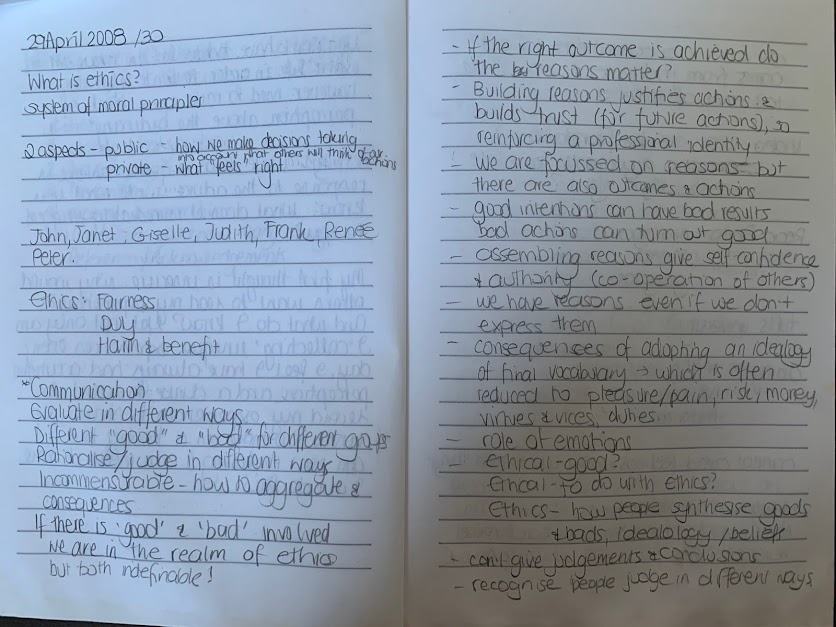 29 April 2008 /30
What is ethics?
system of moral principles
2 aspects - public - how we make decisions taking
into account what others will think of our actions
private - what "feels" right
John, Janet, Giselle, Judith, Frank, Renee
Peter.
Ethics: Fairness
Duty
Harm & benefit
*Communication
Evaluate in different ways
Different "good" & "bad" for different
Rationalise/judge in different ways
Incommensurable - how to aggregate &
consequences
If there is 'good' & 'bad' involved
we are in the realm of ethics
but both indefinable!
- if the right outcome is achieved do
the reasons matter?
- Building reasons justifies actions &
builds trust (for future actions), so
reinforcing a professional identity
- we are focussed on reasons but
there are also outcomes & actions
- good intentions can have bad results
bad actions can turn out good
- assembling reasons give self confidence
& authority (co-operation of others)
- we have reasons even if we don't
express them
- consequences of adopting an idealogy
of final vocabulary → which is often
reduced to pleasure/pain, risk, money,
virtues & vices, duties.
- role of emotions
- ethical - good?
ethical - to do with ethics?
ethics - how people synthesise goods
& bads, idealology / beliefs
- can't give judgements & conclusions
- recognise people judge in different ways